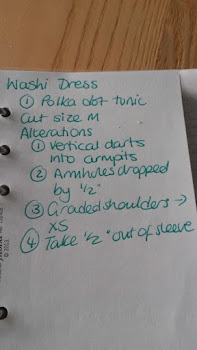 Washi Dress
① Polka dot tunic
Cut size M
Alterations
① Vertical darts
into armpits
② Armholes dropped
by ½"
③ Graded shoulders →
XS
④ Take ½" out of sleeve
© 2012